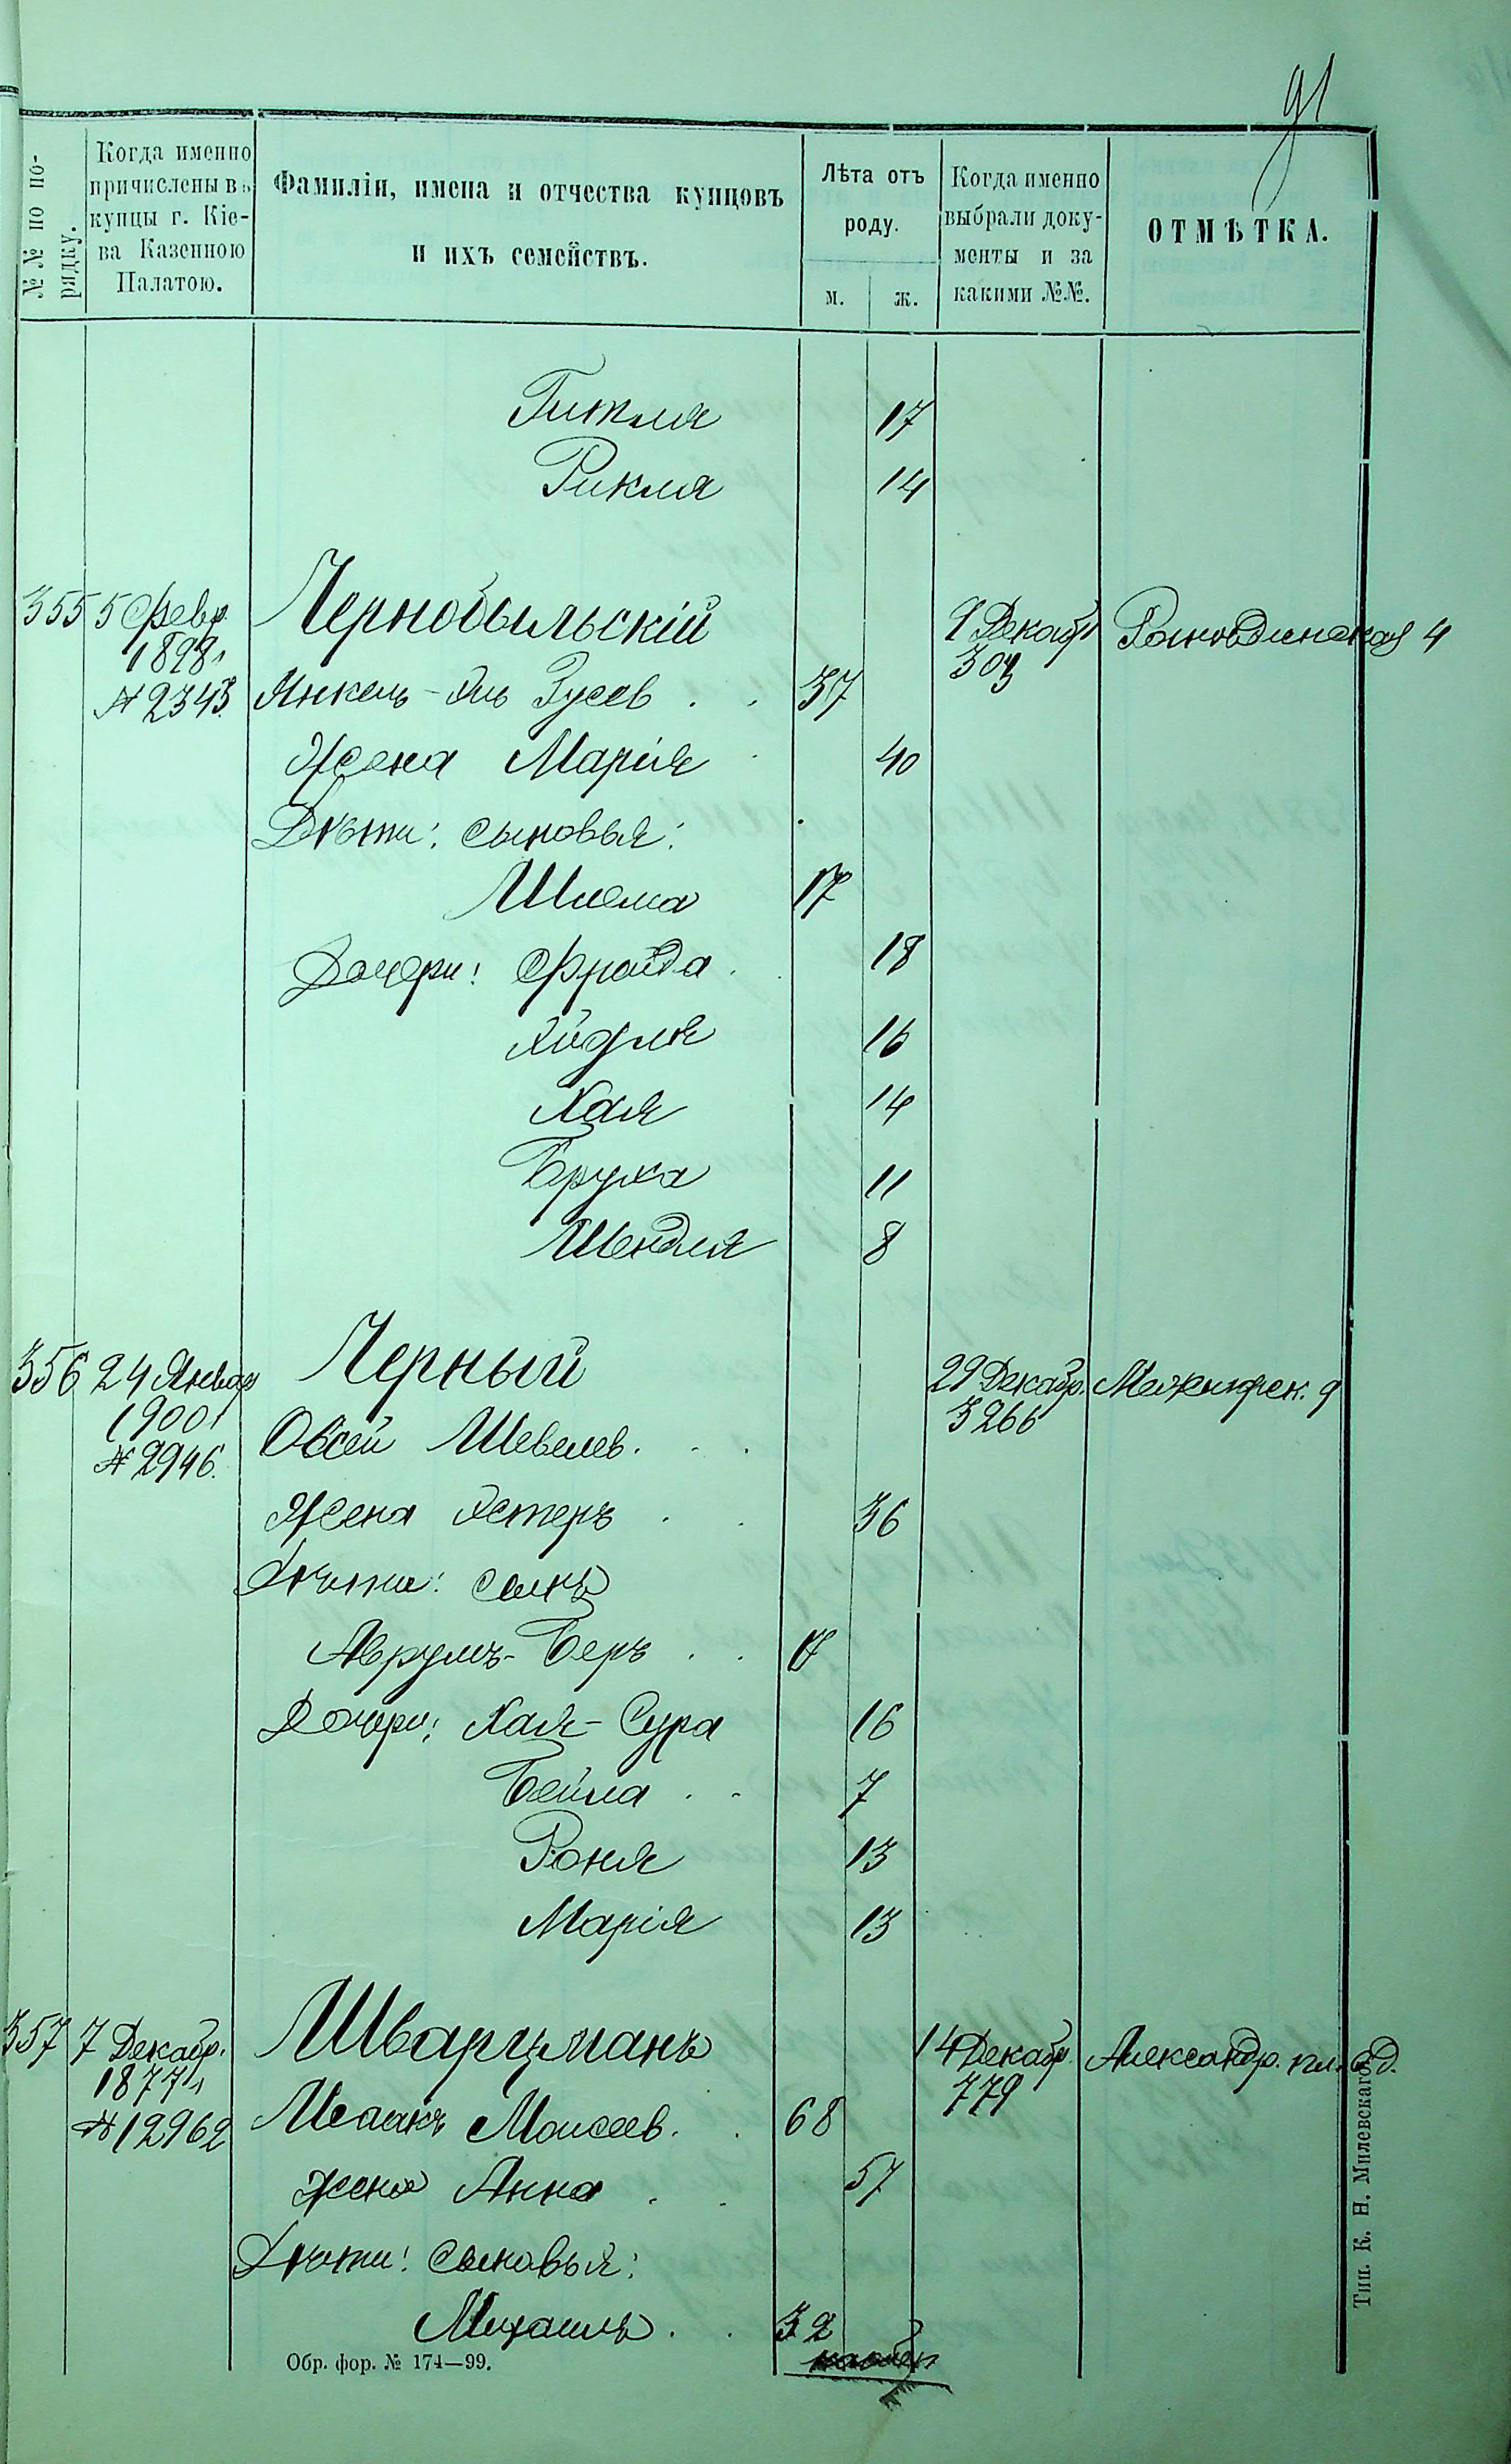 91
№№ по порядку.
Когда именно причислены въ купцы г. Кіева Казенною Палатою.
Фамиліи, имена и отчества купцовъ и ихъ семействъ.
Лѣта отъ роду.
м.
ж.
Когда именно выбрали документы и за какими №№.
ОТМѢТКА.
Гитля 17
Рикля 14
355 5 Февр. Чернобыльскій 9 Декабр 4
1898 303
№ 2343 Янкель- Зусев 37
Жена Марія 40
Дѣти: сыновья:
Шлема 17
Дочери: Фрайда 18
16
Хая 14
Бруха 11
Шендля 8
356 24 Январ Черный 29 Декабр. Межигорск. 9
1900 3266
№ 2946. Овсей Шевелев.
Жена Эстеръ 36
Дѣти: сынъ
Аврумъ-Беръ
Дочери: Хая-Сура 16
Бейла 7
Роня 13
Марія 13
357 7 Декабр. Шварцманъ 14 Декабр. Александр. пл. с. д.
1877 779
№ 12962 Исаакъ Моисеев. 68
жена Анна 57
Дѣти: Сыновья:
Михаилъ 32
Обр. фор. № 174—99.
Тип. К. Н. Милевскаго.